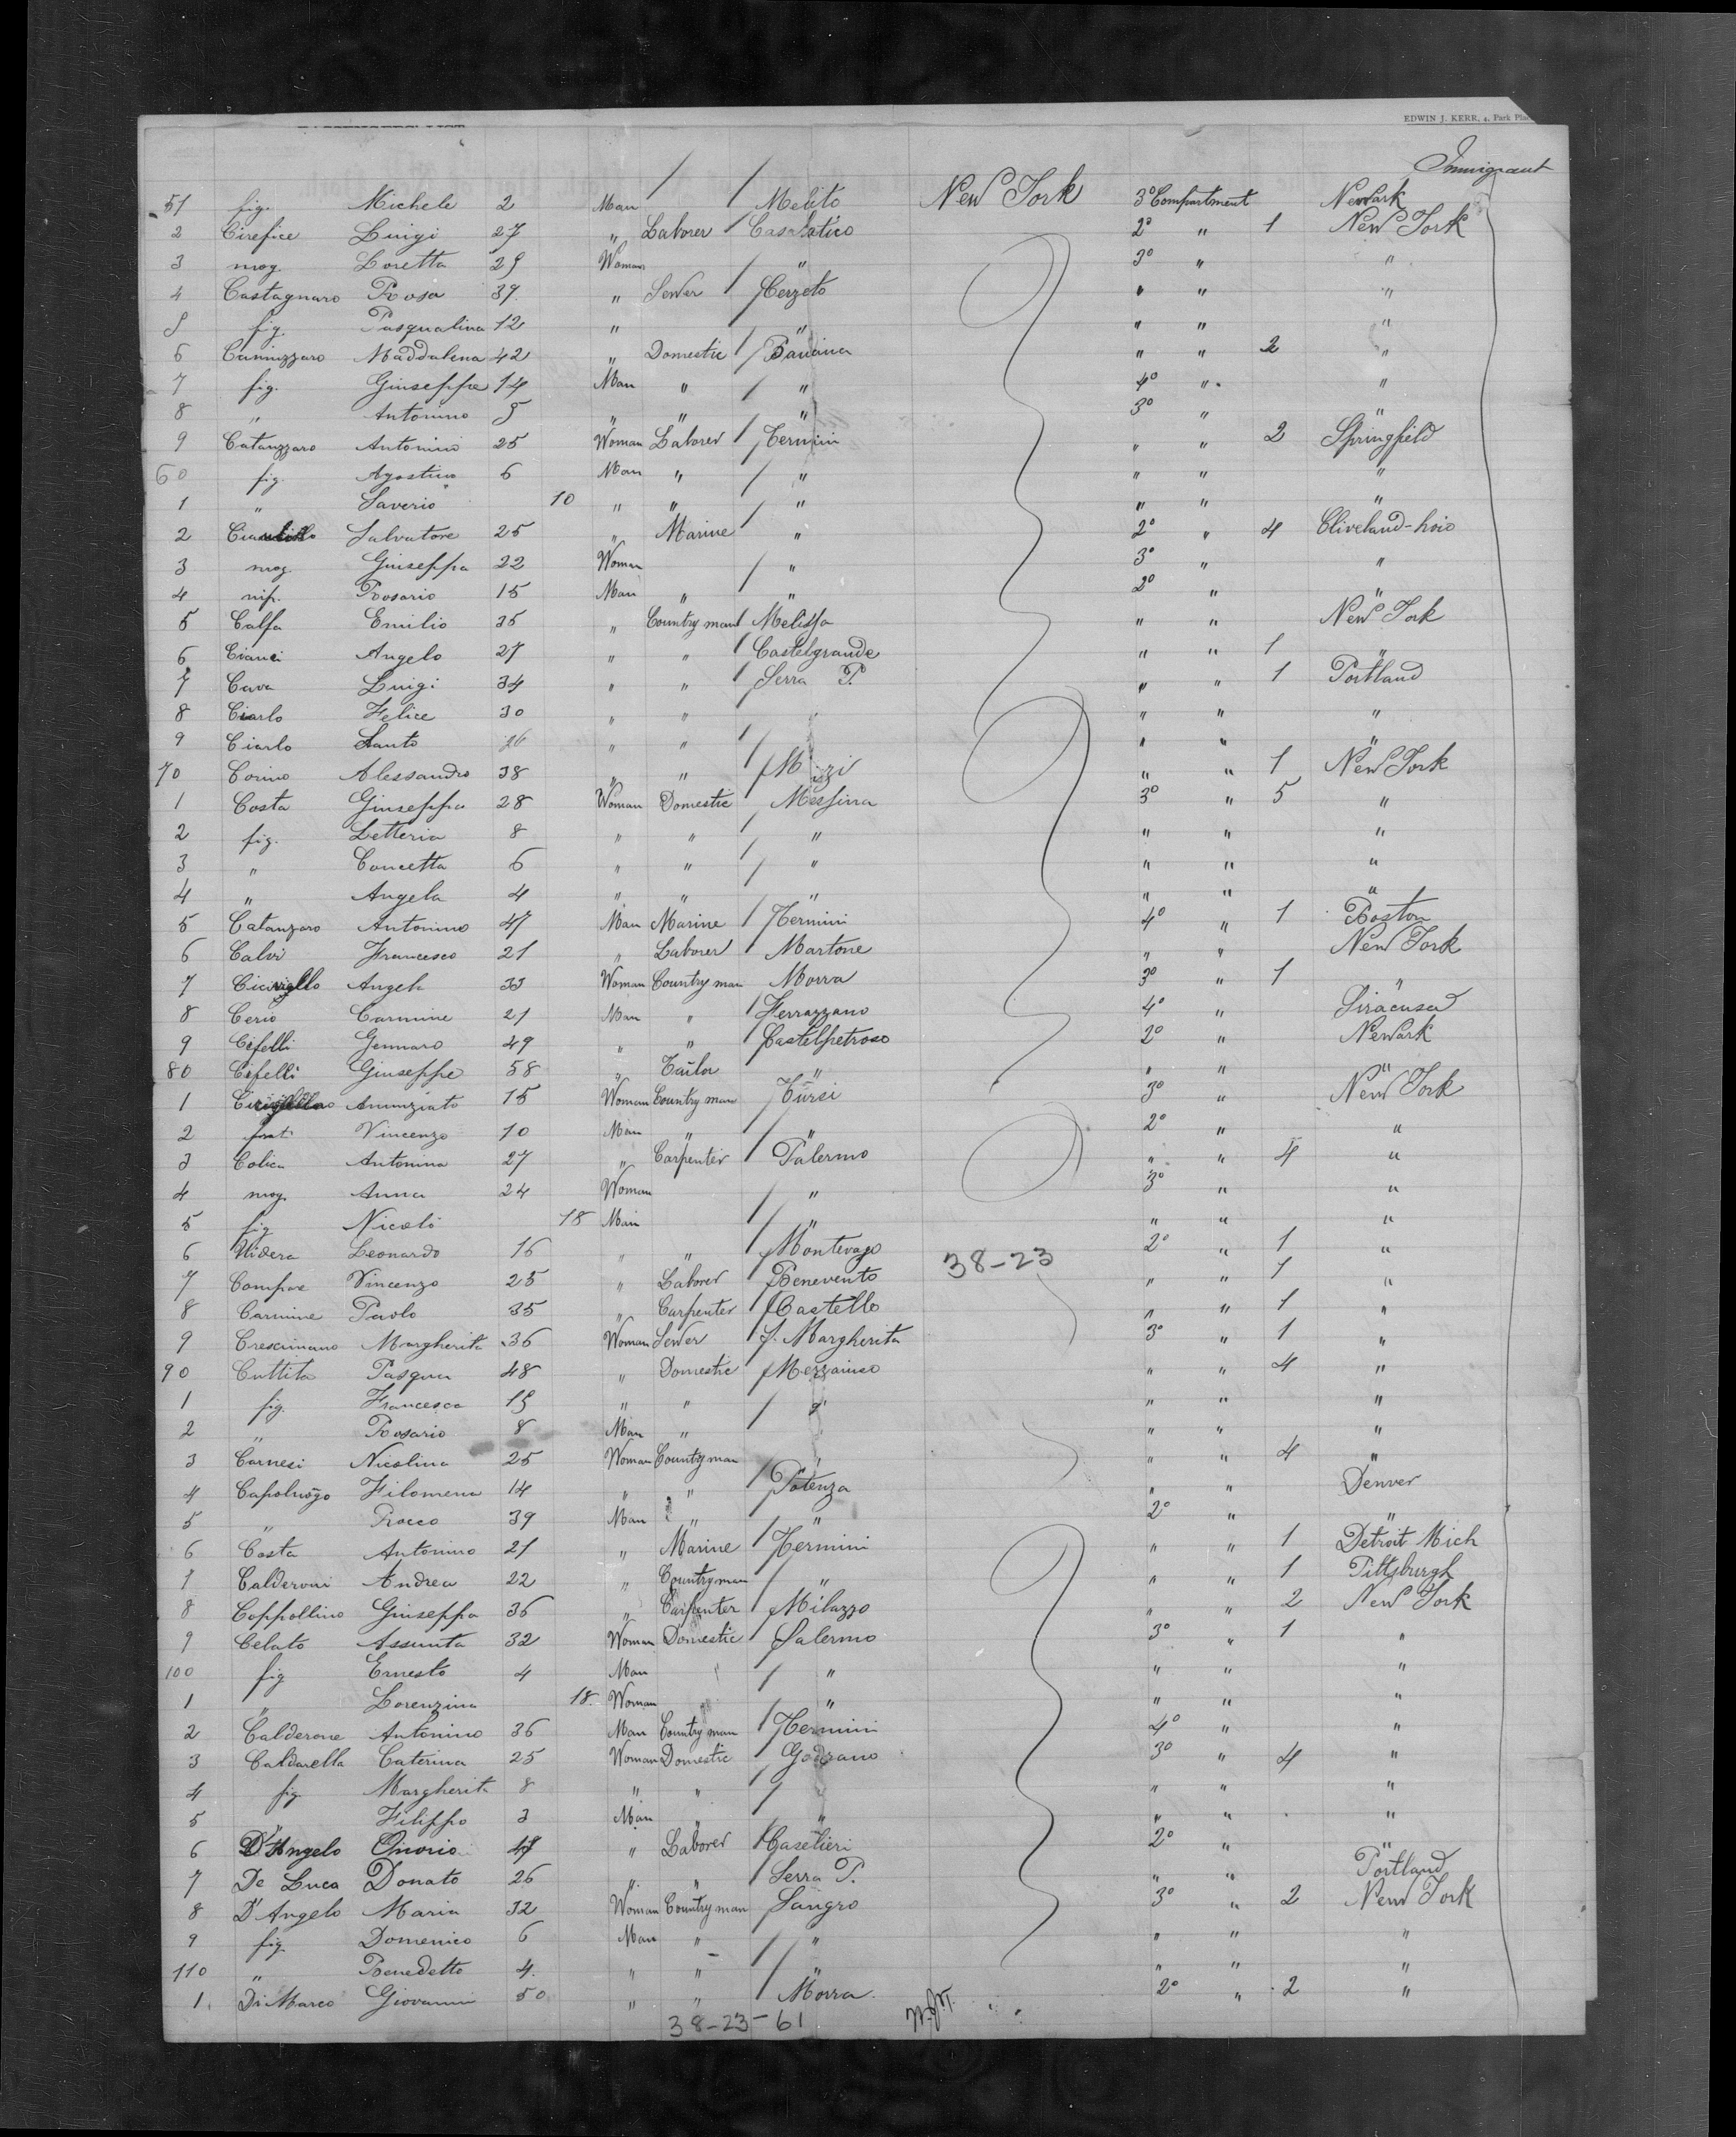 EDWIN J. KERR, 4, Park
Immigrant
51 fig. Michele 2 Man Melito New York 3° Compartment Newark
2 Cirefice Luigi 27 " Laborer Casalatico 2° " 1 New York
3 mog. Loretta 29 Woman " 3° " "
4 Castagnaro Rosa 37 " Sewer Cerzeto " " "
5 fig. Pasqualina 12 " " " " "
6 Cannizzaro Maddalena 42 " Domestic Baucina " " 2 "
7 fig. Giuseppe 14 Man " " 4° " "
8 " Antonino 5 " " " 3° " "
9 Catanzzaro Antonino 25 Woman Laborer Termini " " 2 Springfield
60 fig. Agostino 6 Man " " " " "
1 " Saverio 10 " " " " " "
2 Salvatore 25 " Marine " 2° " 4 Cliveland-hoio
3 mog. Giuseppa 22 Woman " 3° " "
4 nip. Rosario 15 Man " " 2° " "
5 Calfa Emilio 35 " Country man Melissa " " New York
6 Cianci Angelo 27 " " Castelgrande " " 1 "
7 Cava Luigi 34 " " Serra P. " " 1 Portland
8 Ciarlo Felice 30 " " " " "
9 Ciarlo Santo 26 " " " " "
70 Corino Alessandro 38 " " " " 1 New York
1 Costa Giuseppa 28 Woman Domestic Messina 3° " 5 "
2 fig. Letteria 8 " " " " " "
3 " Concetta 6 " " " " " "
4 " Angela 4 " " " " " "
5 Catanzaro Antonino 47 Man Marine Termini 4° " 1 Boston
6 Calvi Francesco 21 " Laborer Martone " " New York
7 Angela 33 Woman Country man Morra 3° " 1 "
8 Cerio Carmine 21 Man " Ferrazzano 4° " Siracusa
9 Cifelli Gennaro 49 " " Castelpetroso 2° " Newark
80 Cifelli Giuseppe 58 " Tailor " " " "
1 Annunziata 15 Woman Country man Tursi 3° " New York
2 frat. Vincenzo 10 Man " " 2° " "
3 Colica Antonino 27 " Carpenter Palermo " " 4 "
4 mog. Anna 24 Woman " 3° " "
5 fig. Nicolò 18 Man " " " "
6 Leonardo 16 " " Montevago 2° " 1 "
38-23
7 Compare Vincenzo 25 " Laborer Benevento " " 1 "
8 Carmine Paolo 35 " Carpenter Castello " " 1 "
9 Crescimano Margherita 36 Woman Sewer S. Margherita 3° " 1 "
90 Cuttita Pasqua 48 " Domestic Mezzaiuso " " 4 "
1 fig. Francesca 15 " " " " " "
2 " Rosario 8 Man " " " "
3 Carnesi Nicolina 25 Woman Country man " " 4 "
4 Capoluogo Filomena 14 " " Potenza " " Denver
5 " Rocco 39 Man " " 2° " "
6 Costa Antonino 21 " Marine Termini " " 1 Detroit Mich
7 Calderoni Andrea 22 " Countryman " " " 1 Pittsburgh
8 Coppollino Giuseppa 36 " Carpenter Milazzo " " 2 New York
9 Celato Assunta 32 Woman Domestic Salerno 3° " 1 "
100 fig Ernesto 4 Man " " " "
1 " Lorenzina 18. Woman " " " "
2 Calderone Antonino 36 Man Country man Termini 4° " "
3 Caldarella Caterina 25 Woman Domestic Godrano 3° " 4 "
4 fig. Margherita 8 " " " " "
5 " Filippo 3 Man " " " " "
6 D'Angelo Onorio " Laborer Caselieri 2° " "
7 De Luca Donato 26 " " Serra P. " " Portland
8 D'Angelo Maria 32 Woman Country man Sangro 3° " 2 New York
9 fig. Domenico 6 Man " " " " "
110 " Benedetto 4. " " " " " "
1. Di Marco Giovanni 50 " " Morra. 2° " 2 "
38-23-61